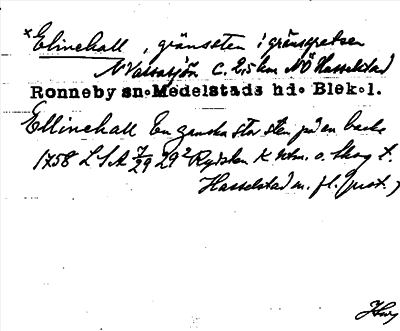 *Elinehall, gränssten i gränsgretsen
N Vassasjön c. 2,5 km NÖ Hasselstad
Ronneby sn. Medelstads hd. Blek.l.
Ellinehall En ganska stor sten på en backe
1758 LSA 7/29 29² Rydslen K utm. o. skog t.
Hasselstad m. fl. (just.)